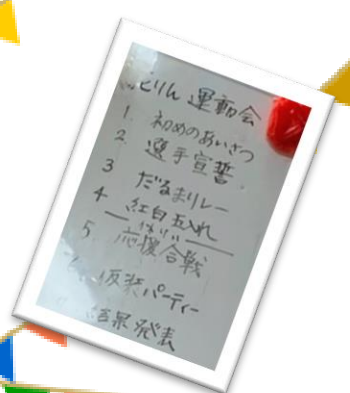 どりん 運動会
1. 初めのあいさつ
2 選手宣誓
3 だるまリレー
4 紅白玉入れ
5 応援合戦
仮装パーティー
結果発表